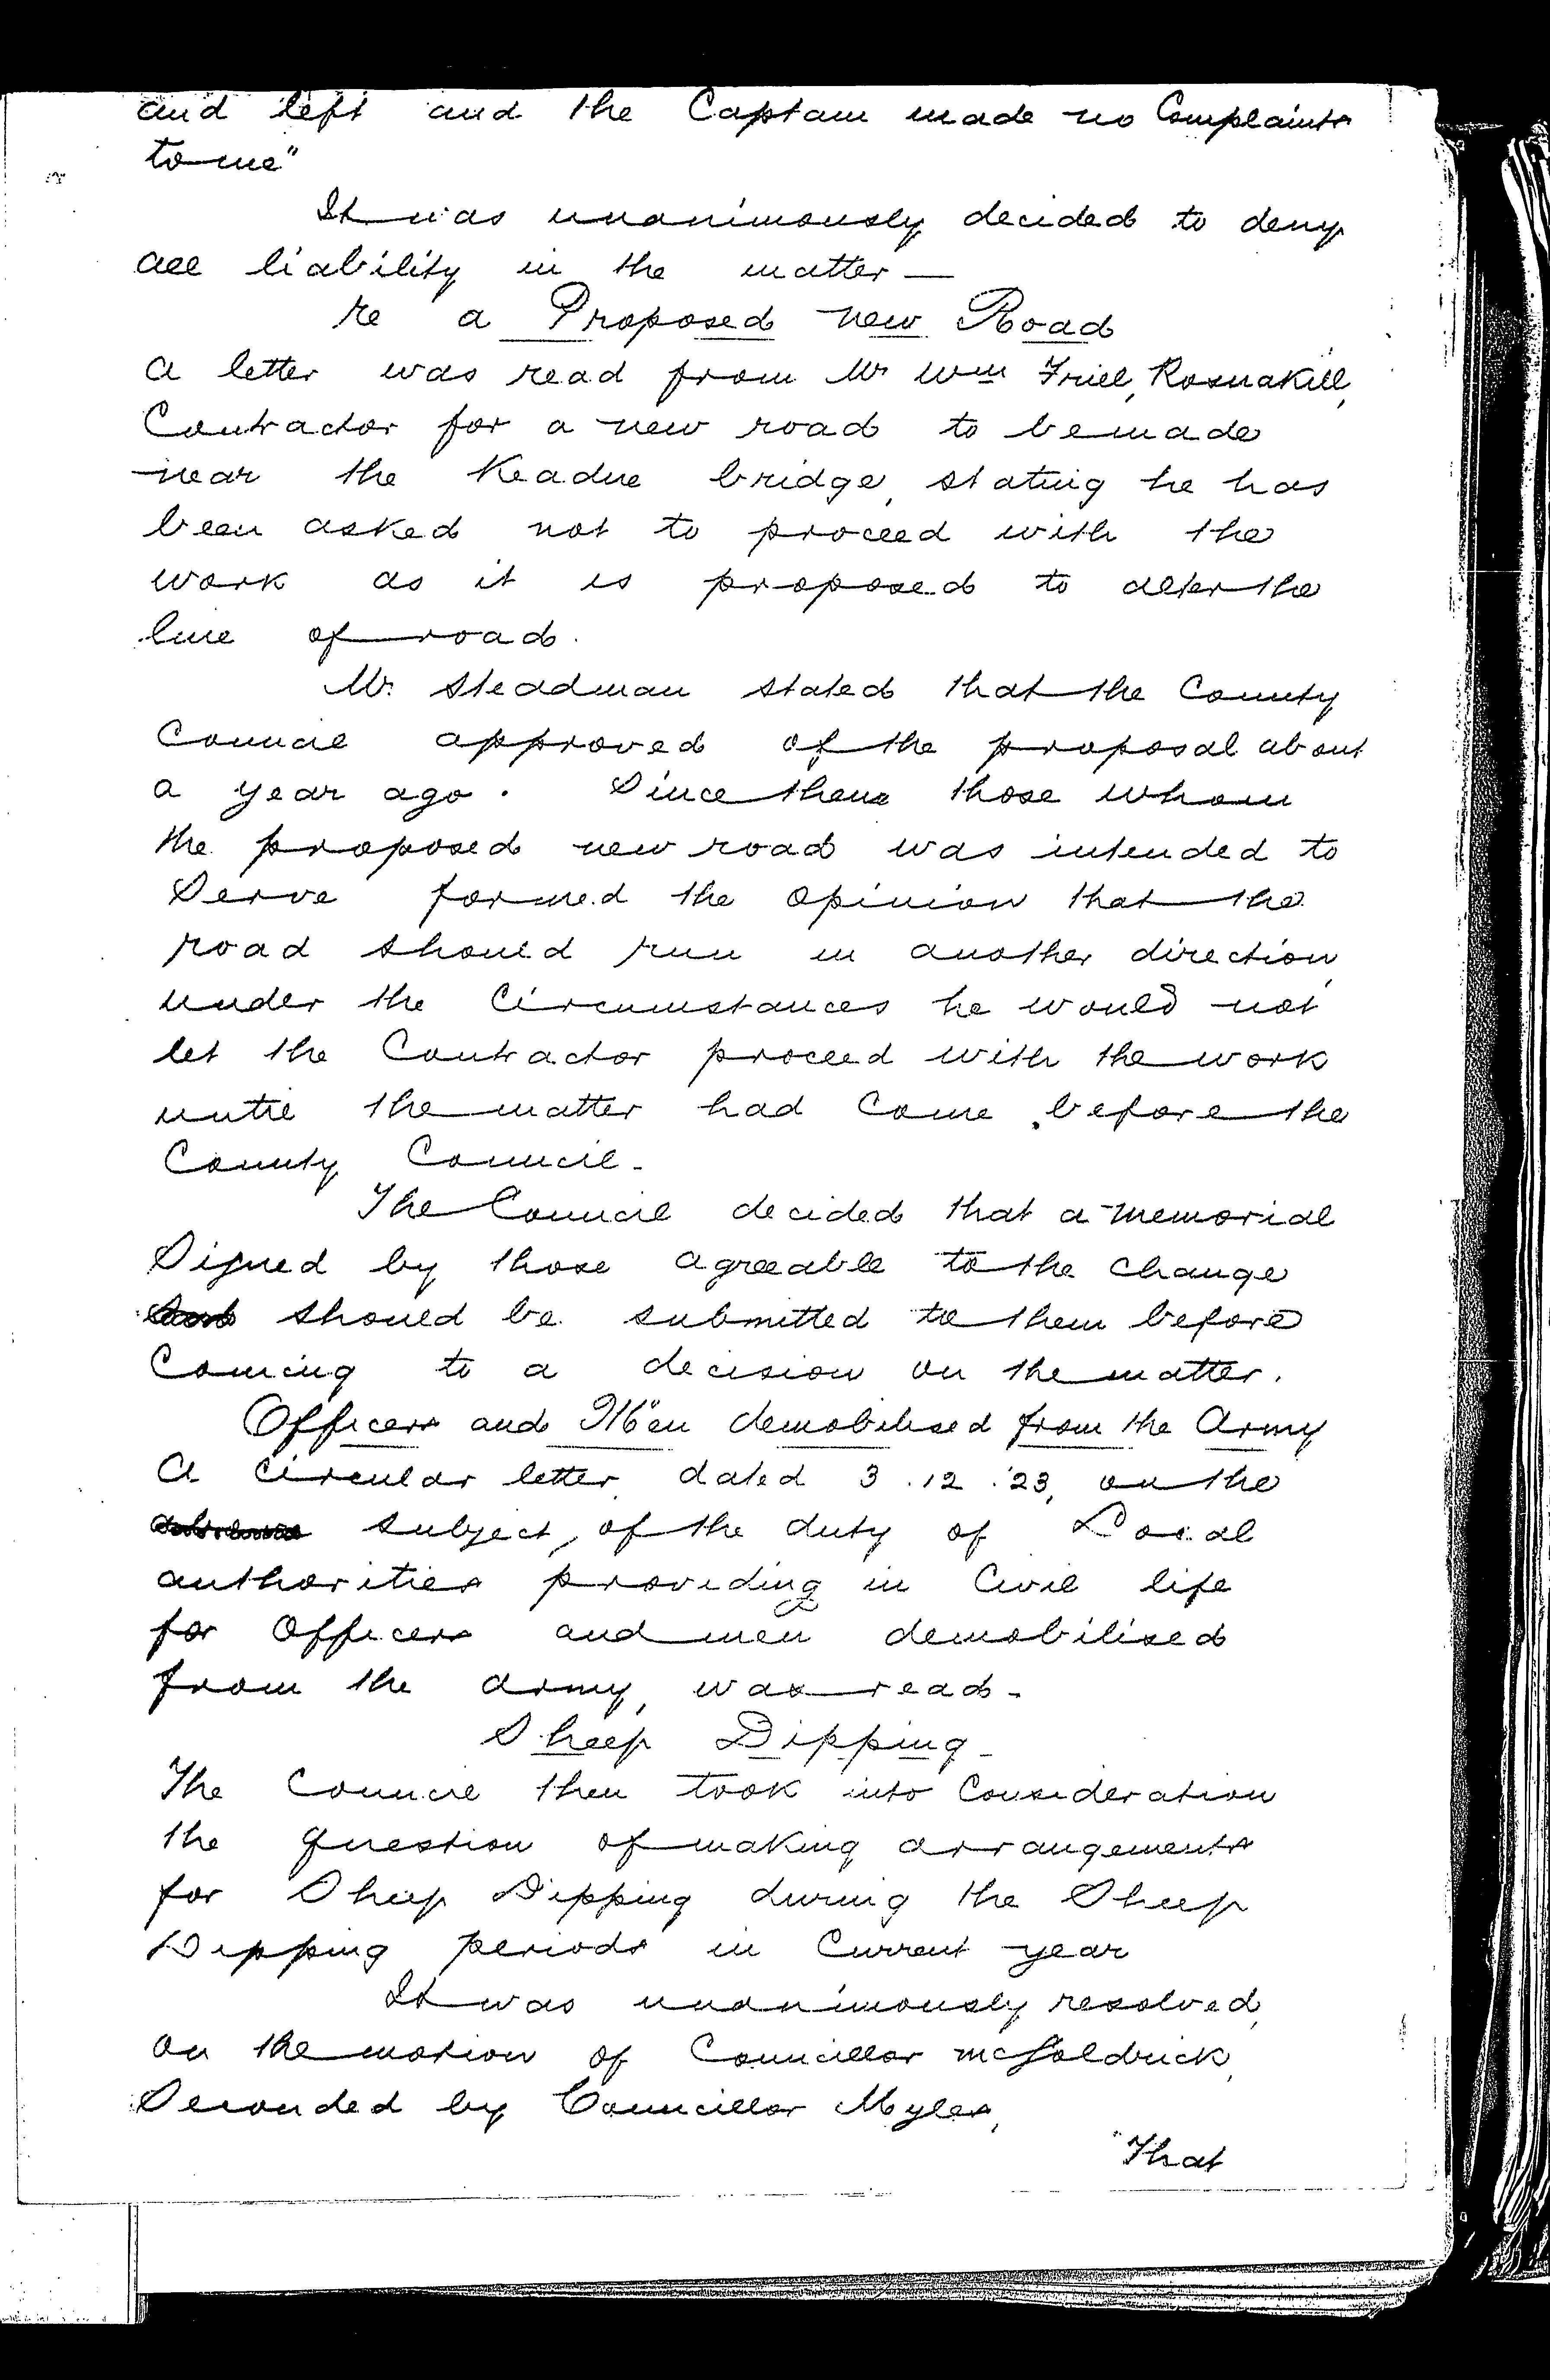 and left and the Captain made no Complaints
to me"
It was unanimously decided to deny
all liability in the matter —
re a Proposed new Road
A letter was read from Mr Wm Friel, Rosnakill,
Contractor for a new road to be made
near the Keadue bridge, stating he has
been asked not to proceed with the
work as it is proposed to alter the
line of road.
Mr. Steadman stated that the County
Council approved of the proposal about
a year ago. Since then those whom
the proposed new road was intended to
Serve formed the opinion that the
road should run in another direction,
under the Circumstances he would not
let the Contractor proceed with the work
until the matter had Come before the
County Council.
The Council decided that a memorial
Signed by those agreeable to the change
should be submitted to them before
Coming to a decision on the matter.
Officers and Men demobilised from the Army
A Circular letter dated 3.12.'23, on the
subject, of the duty of Local
authorities providing in Civil life
for Officers and men demobilised
from the army, was read -
Sheep Dipping -
The Council then took into Consideration
the question of making arrangements
for Sheep Dipping during the Sheep
Dipping periods in Current year
It was unanimously resolved,
on the motion of Councillor McGoldrick,
Seconded by Councillor Myles,
"That